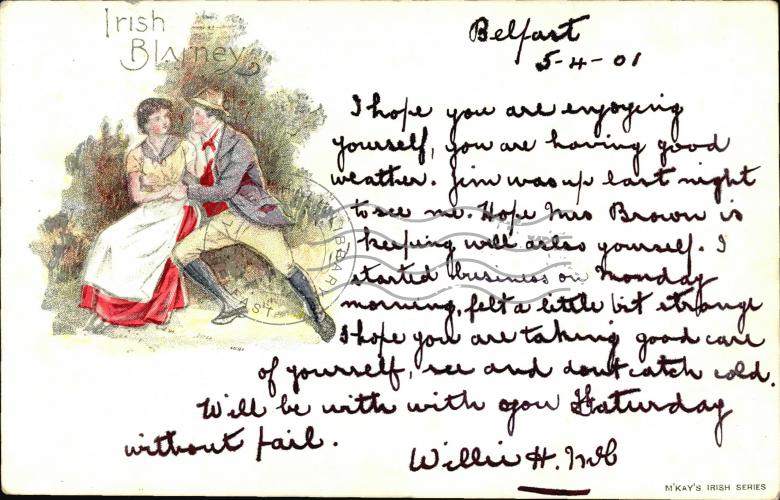 Irish
Blarney
Belfast
5-4-01
I hope you are enjoying
yourself, you are having good
weather. Jim was up last night
to see me. Hope Mrs Brown is
keeping well also yourself. I
started business on Monday
morning, felt a little bit strange
I hope you are taking good care
of yourself, see and dont catch cold.
Will be with with you Saturday
without fail.
Willie H. McC
M'KAY'S IRISH SERIES